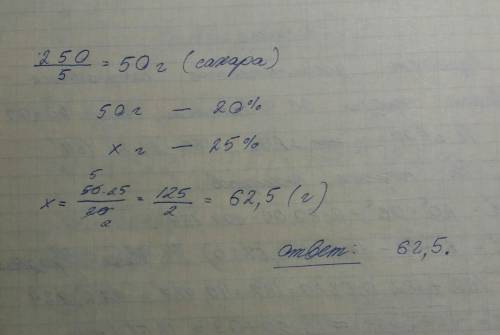 250/5 = 50 г (сахара)
50 г — 20%
x г — 25%
x = 50·25/20 = 125/2 = 62,5 (г)
5
2
ответ: 62,5.